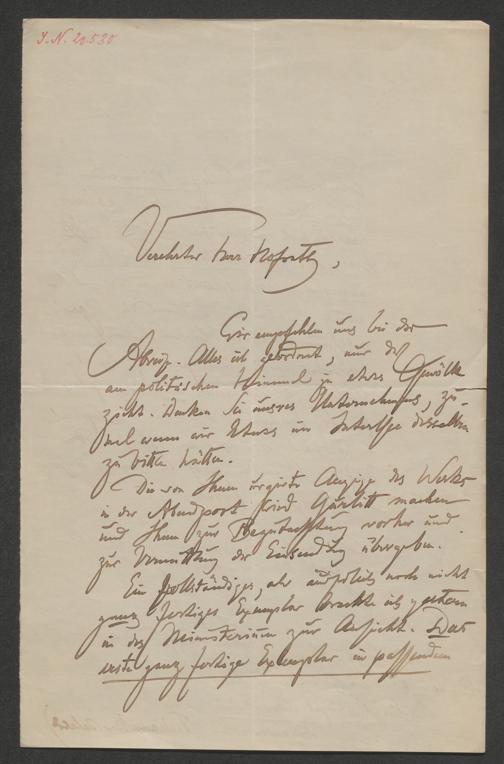 J. N. 20.530
Verehrter Herr Hofrath,
Wir empfehlen uns bei der
Abreise. Alles ist geordnet, nur daß
am politischen Himmel ja etwas Gewölk
zieht. Denken Sie unsres Unternehmens, zu-
mal wenn wir Etwas im Interesse desselben
zu bitten hätten.
Die von Ihnen urgirte Anzeige des Werks
in der Abendpost wird Gurlitt machen
und Ihnen zur Begutachtung vorher und
zur Vermittlung der Einsendung übergeben.
Ein vollständiges, aber noch nicht
ganz fertiges Exemplar brachte ich gestern
in das Ministerium zur Ansicht. Das
erste ganz fertige Exemplar in passendem